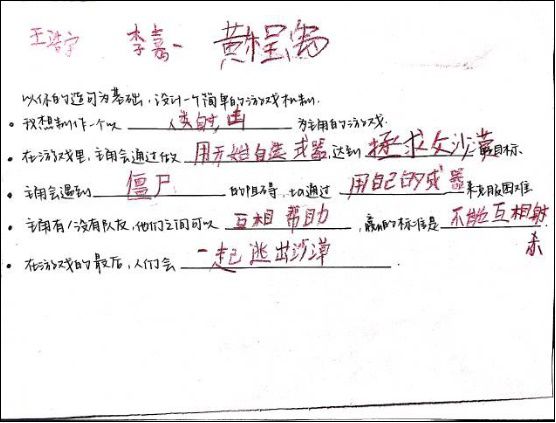 王浩宁 李嘉一 黄程
以你的造句为基础,设计一个简单的游戏机制.
• 我想制作一个以 人类自由 为主角的游戏.
• 在游戏里,主角会通过做 用无始自造武器 达到 拯求父沙漠 目标.
• 主角会遇到 僵尸 的阻碍,ta通过 用自己的武器 来克服困难
• 主角有/没有队友,他们之间可以 互相帮助 ,赢的标准是 不能互相射
杀
• 在游戏的最后,人们会 一起逃出沙漠 .